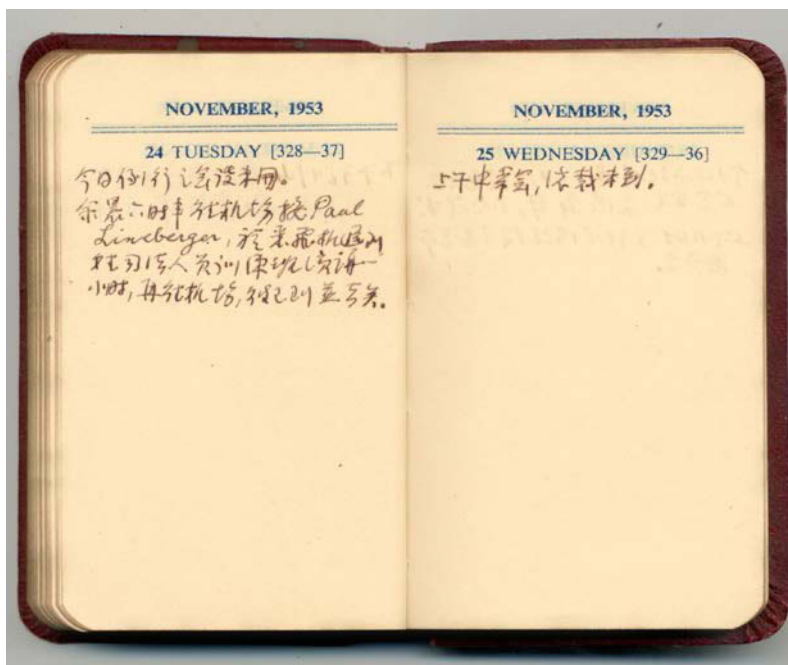 NOVEMBER, 1953
24 TUESDAY [328—37]
今日例行之会没来開。
余晨六时半往机场接 Paul
Lineberger, 飛机遲到
司法人员训练班演讲一
小时,再往机场,彼已到
NOVEMBER, 1953
25 WEDNESDAY [329—36]
上午中常会,总裁未到。